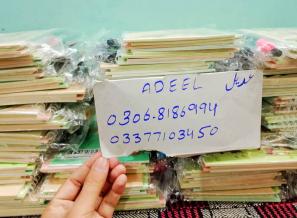 ADEEL عدیل
0306-8186994
03377103450